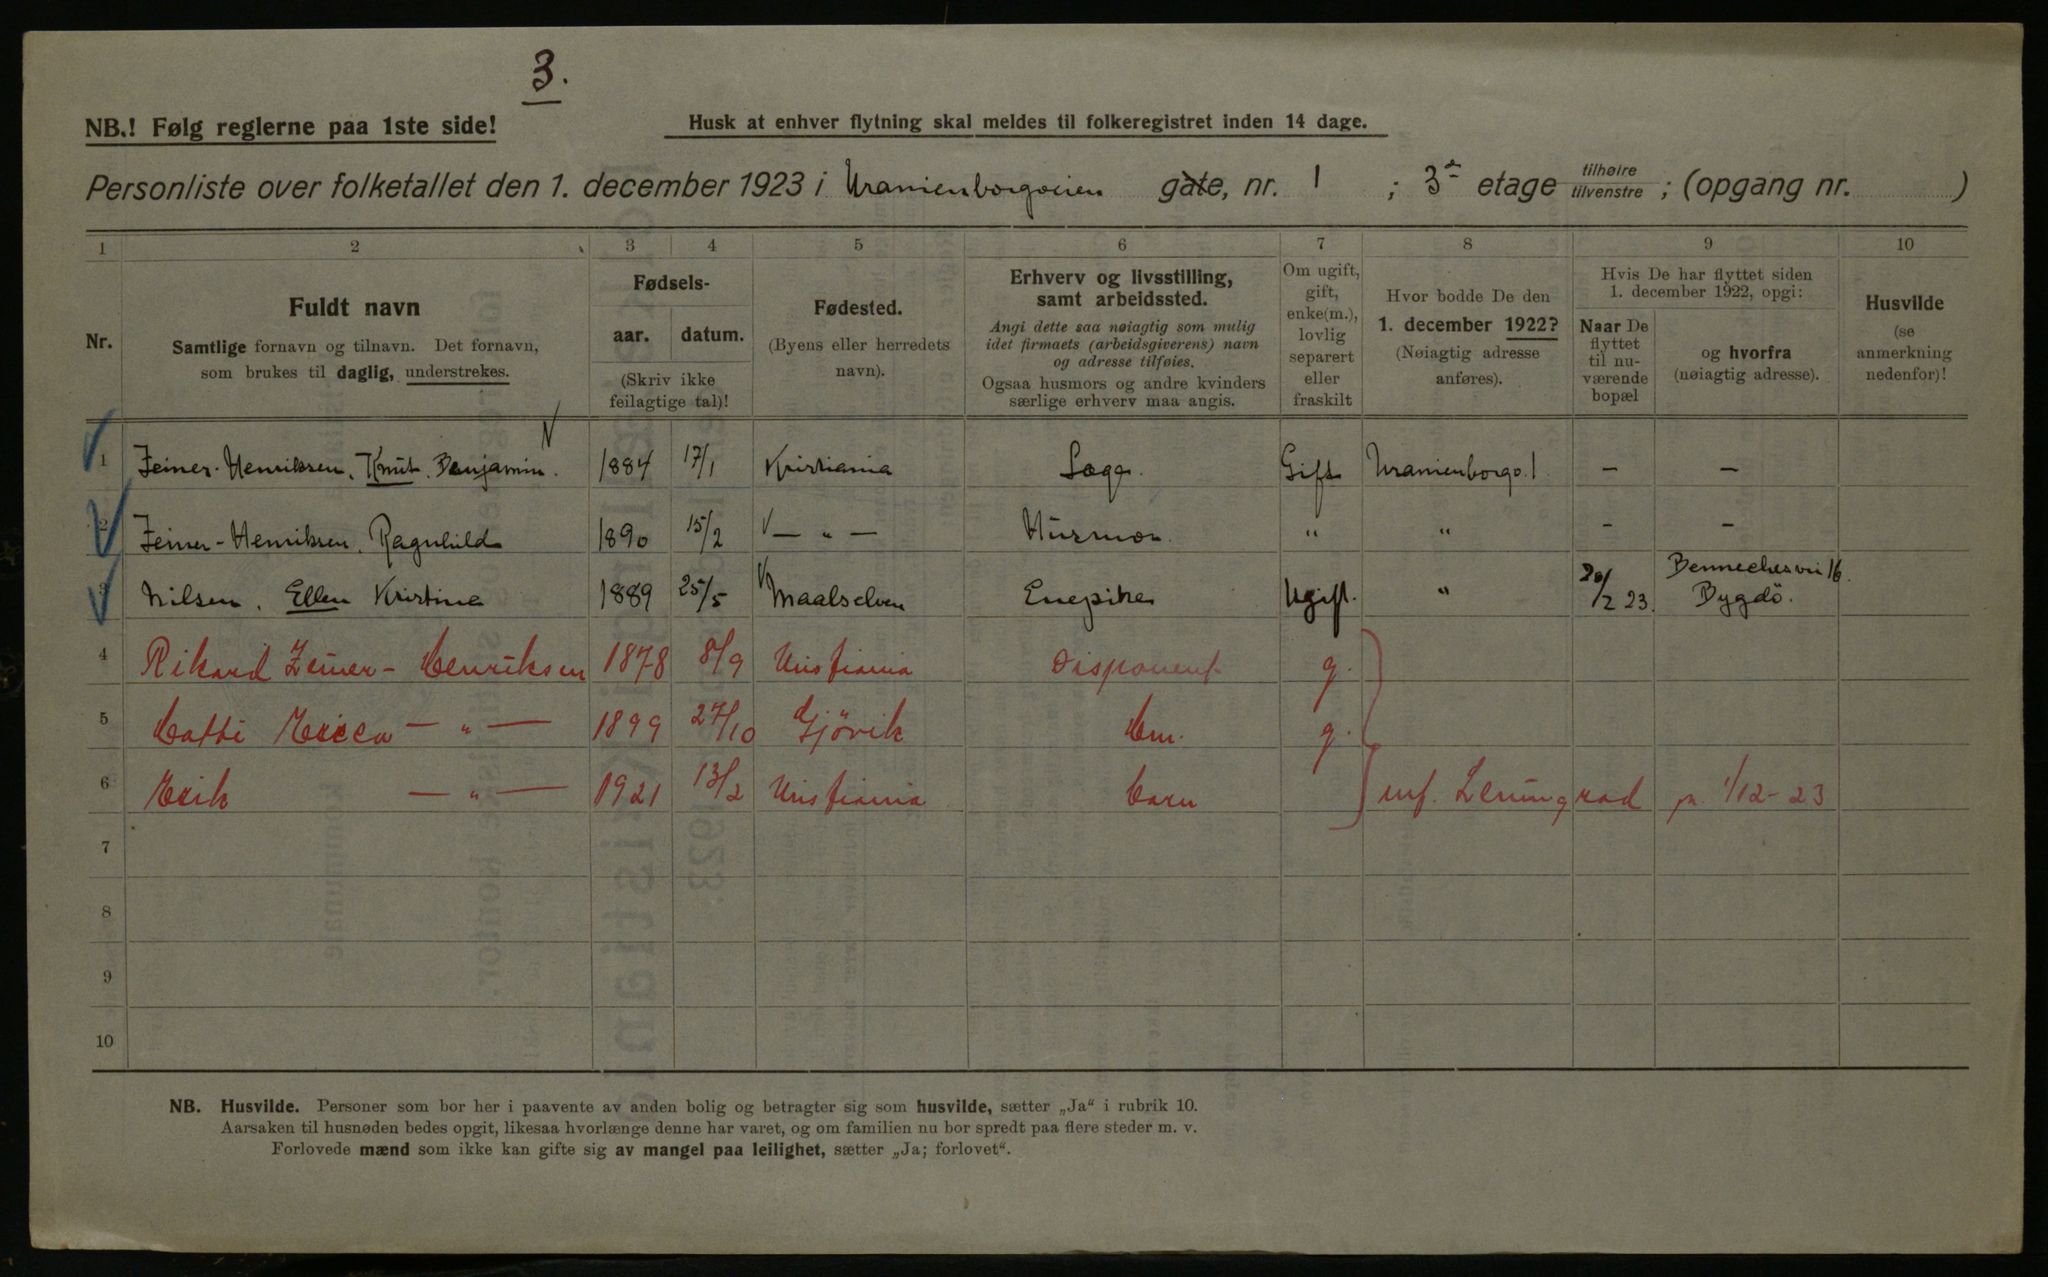 3.
NB.! Følg reglerne paa 1ste side!
Husk at enhver flytning skal meldes til folkeregistret inden 14 dage.
Personliste over folketallet den 1. december 1923 i Uranienborgveien gate, nr. 1 ; 3d etage tilhøire tilvenstre ; (opgang nr. )
1 2 3 4 5 6 7 8 9 10
Nr.
Fuldt navn
Samtlige fornavn og tilnavn. Det fornavn,
som brukes til daglig, understrekes.
Fødsels-
aar. datum.
(Skriv ikke
feilagtige tal)!
Fødested.
(Byens eller herredets
navn).
Erhverv og livsstilling,
samt arbeidssted.
Angi dette saa nøiagtig som mulig
idet firmaets (arbeidsgiverens) navn
og adresse tilføies.
Ogsaa husmors og andre kvinders
særlige erhverv maa angis.
Om ugift,
gift,
enke(m.),
lovlig
separert
eller
fraskilt
Hvor bodde De den
1. december 1922?
(Nøiagtig adresse
anføres).
Hvis De har flyttet siden
1. december 1922, opgi:
Naar De
flyttet
til nu-
værende
bopæl
og hvorfra
(nøiagtig adresse).
Husvilde
(se
anmerkning
nedenfor)!
1 Zeiner-Henriksen, Knut Benjamin. 1884 17/1 Kristiania Læge. Gift Uranienborgv. 1 — —
2 Zeiner-Henriksen, Ragnhild 1890 15/2 — „ — Husmor. „ „ - —
3 Nilsen, Ellen Kristine 1889 25/5 Maalselven Enepike Ugift. „ 20/2 23. Bennechesvei 16. Bygdö.
4 Rikard Zeiner-Henriksen 1878 8/9 Kristiania Disponent g.
5 — „ — 1899 27/10 Gjövik Hm. g.
6 Erik — „ — 1921 13/2 Kristiania barn inf. Leningrad pr. 1/12-23
7
8
9
10
NB. Husvilde. Personer som bor her i paavente av anden bolig og betragter sig som husvilde, sætter „Ja“ i rubrik 10.
Aarsaken til husnøden bedes opgit, likesaa hvorlænge denne har varet, og om familien nu bor spredt paa flere steder m. v.
Forlovede mænd som ikke kan gifte sig av mangel paa leilighet, sætter „Ja; forlovet“.